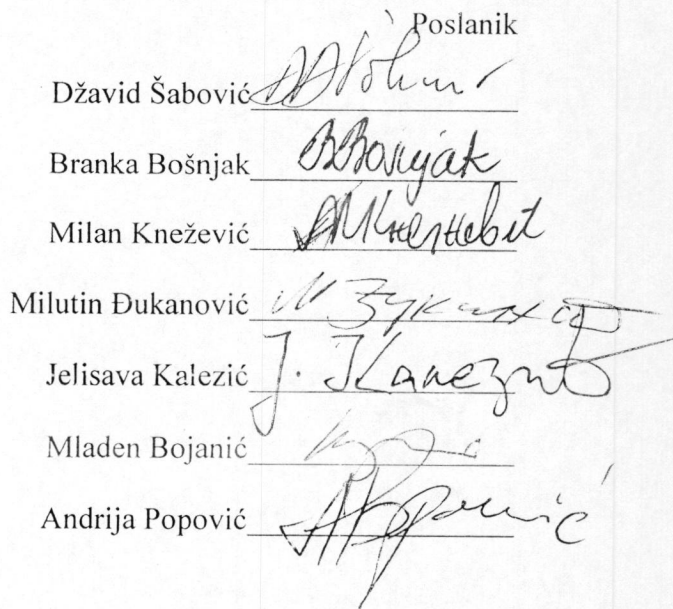 Poslanik
Džavid Šabović
Branka Bošnjak BBošnjak
Milan Knežević
Milutin Đukanović
Jelisava Kalezić J.
Mladen Bojanić
Andrija Popović APopović